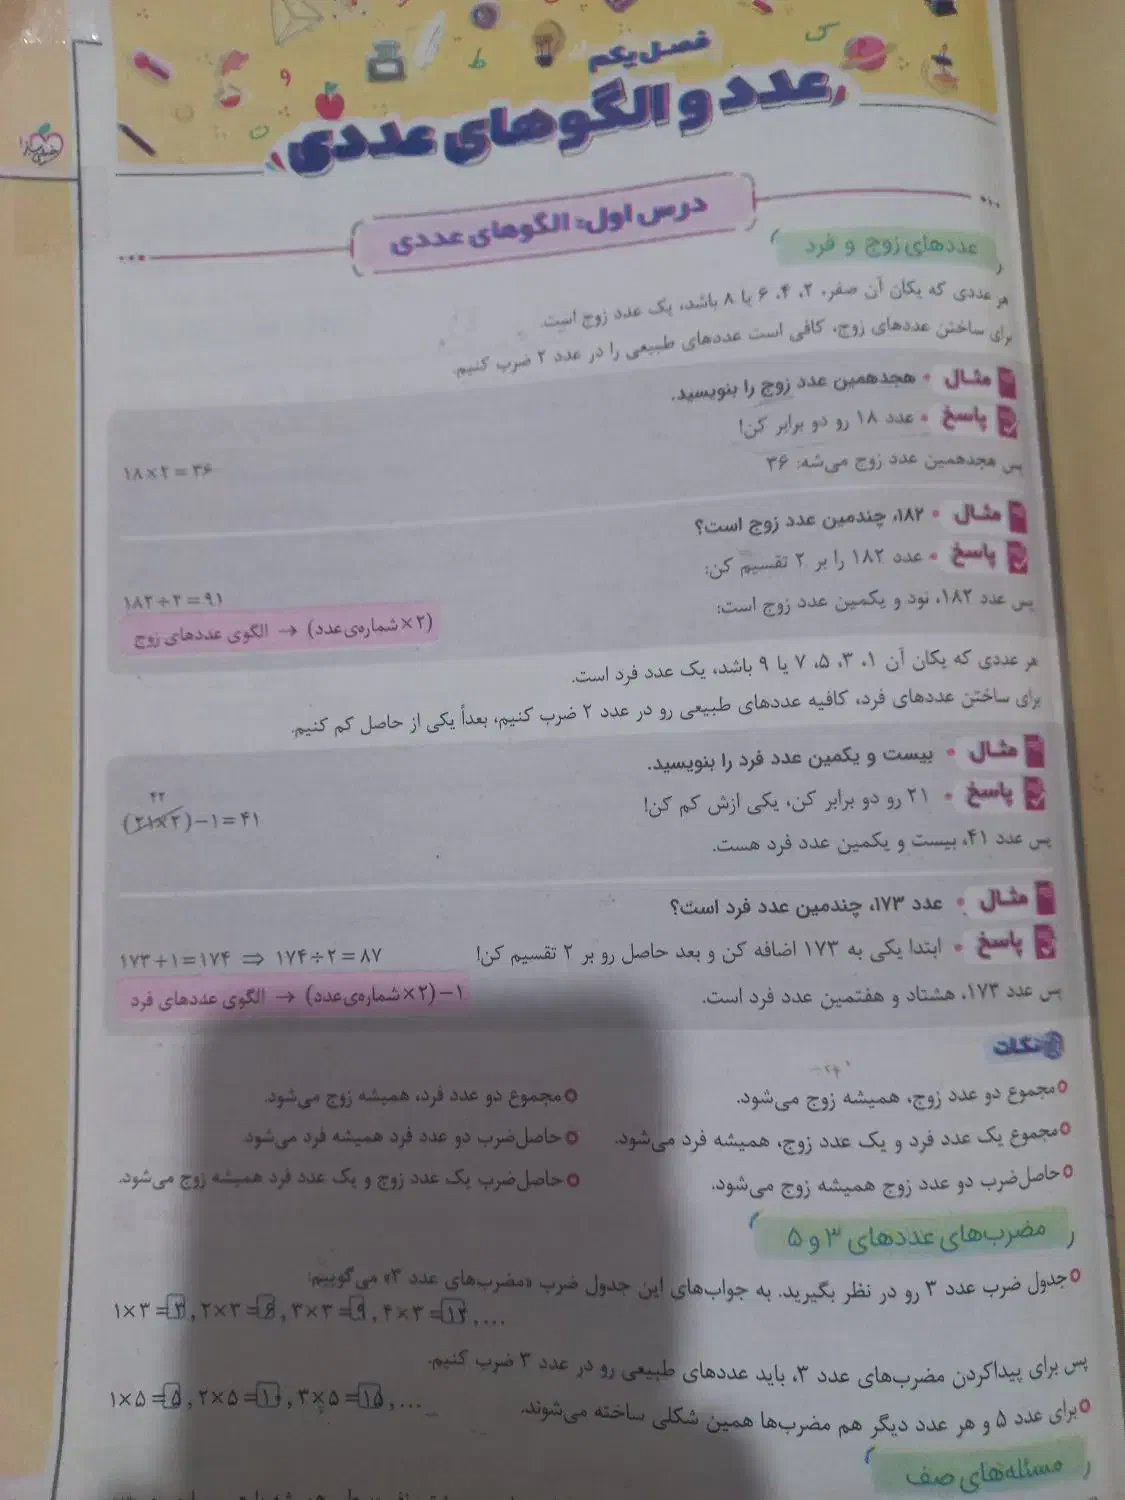 فصل یکم
عدد و الگوهای عددی
درس اول: الگوهای عددی
عددهای زوج و فرد
هر عددی که یکان آن صفر، ۲، ۴، ۶ یا ۸ باشد، یک عدد زوج است.
برای ساختن عددهای زوج، کافی است عددهای طبیعی را در عدد ۲ ضرب کنیم.
مثال • هجدهمین عدد زوج را بنویسید.
پاسخ • عدد ۱۸ رو دو برابر کن!
پس هجدهمین عدد زوج می‌شه: ۳۶
۱۸×۲=۳۶
مثال • ۱۸۲، چندمین عدد زوج است؟
پاسخ • عدد ۱۸۲ را بر ۲ تقسیم کن:
پس عدد ۱۸۲، نود و یکمین عدد زوج است:
۱۸۲÷۲=۹۱
الگوی عددهای زوج → (شماره‌ی عدد×۲)
هر عددی که یکان آن ۱، ۳، ۵، ۷ یا ۹ باشد، یک عدد فرد است.
برای ساختن عددهای فرد، کافیه عددهای طبیعی رو در عدد ۲ ضرب کنیم، بعداً یکی از حاصل کم کنیم.
مثال • بیست و یکمین عدد فرد را بنویسید.
پاسخ • ۲۱ رو دو برابر کن، یکی ازش کم کن!
۴۲
(۲۱×۲)−۱=۴۱
پس عدد ۴۱، بیست و یکمین عدد فرد هست.
مثال • عدد ۱۷۳، چندمین عدد فرد است؟
پاسخ • ابتدا یکی به ۱۷۳ اضافه کن و بعد حاصل رو بر ۲ تقسیم کن!
۱۷۳+۱=۱۷۴ ⇒ ۱۷۴÷۲=۸۷
پس عدد ۱۷۳، هشتاد و هفتمین عدد فرد است.
الگوی عددهای فرد → (شماره‌ی عدد×۲)−۱
نکات
مجموع دو عدد زوج، همیشه زوج می‌شود.
مجموع دو عدد فرد، همیشه زوج می‌شود.
مجموع یک عدد فرد و یک عدد زوج، همیشه فرد می‌شود.
حاصل‌ضرب دو عدد فرد همیشه فرد می‌شود.
حاصل‌ضرب دو عدد زوج همیشه زوج می‌شود.
حاصل‌ضرب یک عدد زوج و یک عدد فرد همیشه زوج می‌شود.
مضرب‌های عددهای ۳ و ۵
جدول ضرب عدد ۳ رو در نظر بگیرید. به جواب‌های این جدول ضرب «مضرب‌های عدد ۳» می‌گوییم:
۱×۳=۳, ۲×۳=۶, ۳×۳=۹, ۴×۳=۱۲, ...
پس برای پیداکردن مضرب‌های عدد ۳، باید عددهای طبیعی رو در عدد ۳ ضرب کنیم.
برای عدد ۵ و هر عدد دیگر هم مضرب‌ها همین شکلی ساخته می‌شوند.
۱×۵=۵, ۲×۵=۱۰, ۳×۵=۱۵, ...
مسئله‌های صف